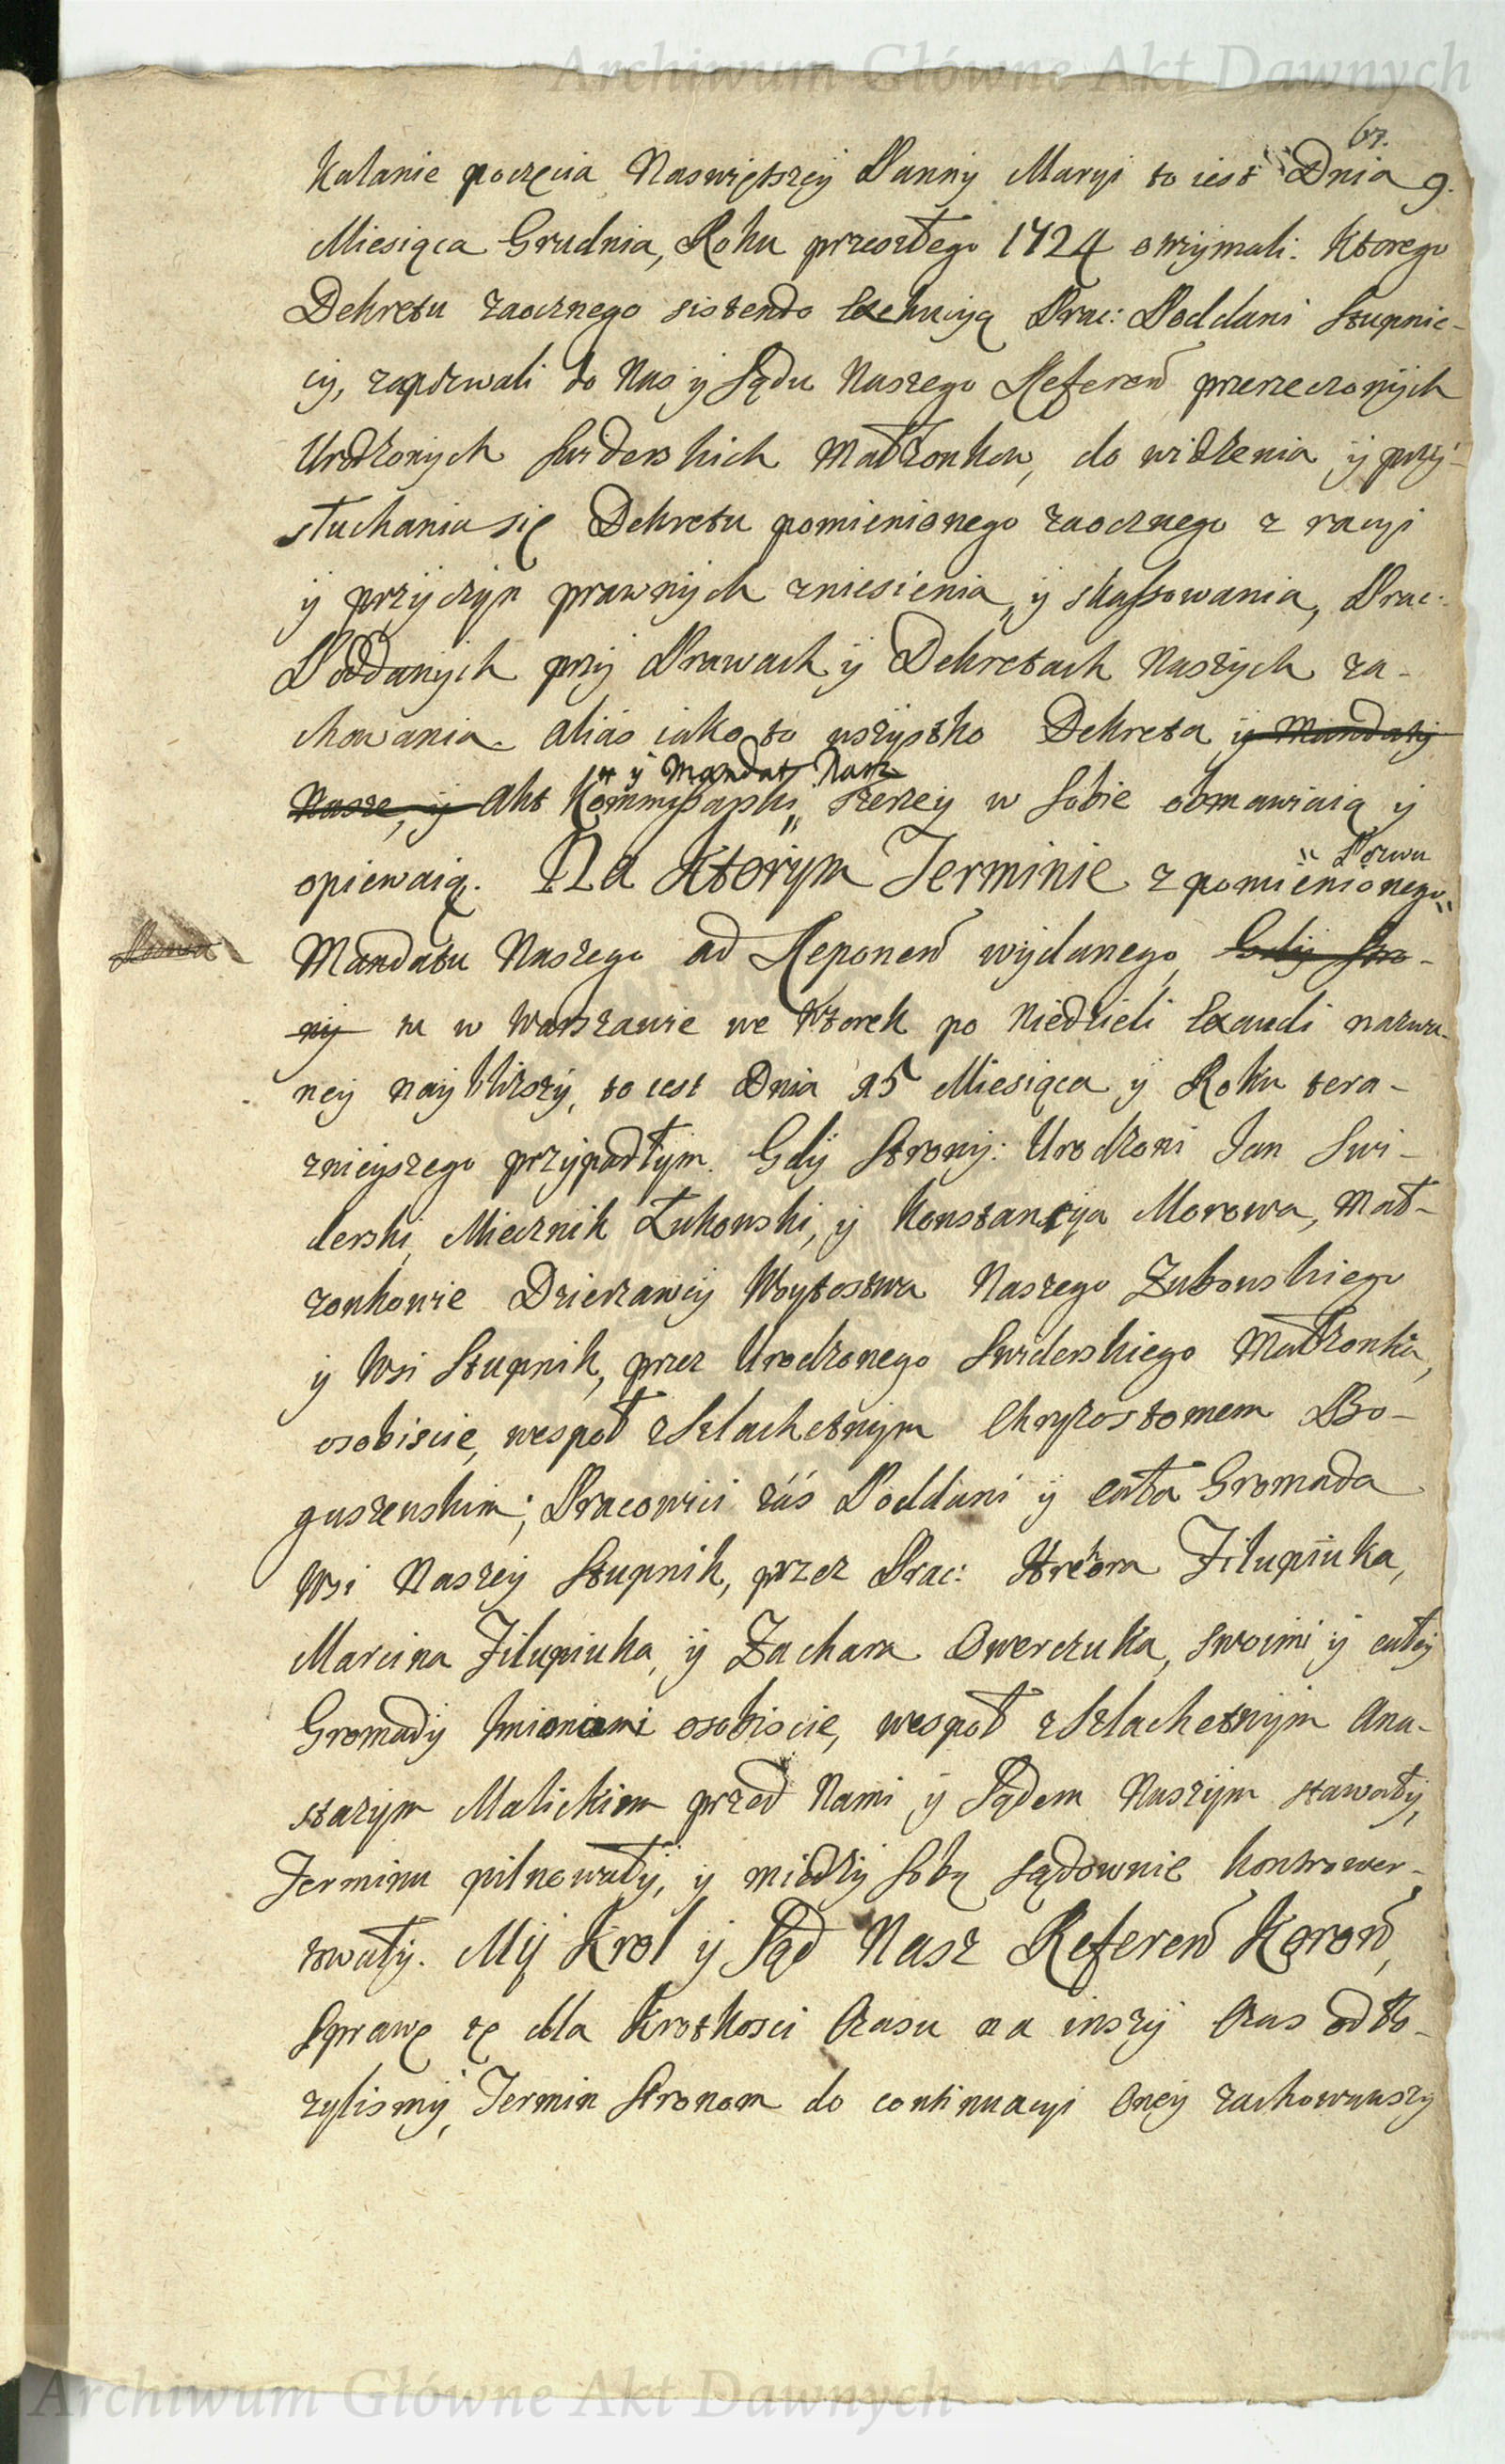 Archiwum Główne Akt Dawnych
67.
Kalanie poczęcia Naswiętszey Panny Maryi to iest Dnia 9.
Miesiąca Grudnia, Roku przeszłego 1724 otrzymali. Ktorego
Dekretu zaocznego sistendo Exekucyą Prac: Poddani Stupnic-
cy, zapozwali do Nas y Sądu Naszego Referen̄ przerzeczonych
Urodzonych Swiderskich Małzonkow, do widzenia y przy-
słuchania się Dekretu pomienionego zaocznego z racyi
y przyczyn prawnych zniesienia, y skassowania, Prac:
Poddanych przy Prawach y Dekretach Naszych za-
chowania. alias iako to wszystko Dekreta y Mandaty
" y Mandat Nasz
Nasze, y Akt Kommissarski " szerzey w sobie obmawiaią y
" Pozwu
opiewaią. Na Ktorym Terminie z pomienionego "
Mandatu Naszego ad Reponen̄ wydanego, Gdy Stro-
ny tu w Warszawie we Wtorek po Niedzieli Exaudi nazwa-
ney naybliższy, to iest Dnia 15 Miesiąca y Roku tera-
znieyszego przypadłym. Gdy Strony: Urodzoni Jan Swi-
derski, Miecznik Łukowski, y Konstancya Morowa, Mał-
zonkowie Dzierzawcy Woytostwa Naszego Zukowskiego
y Wsi Stupnik, przez Urodzonego Swiderskiego Małzonka,
osobiscie, wespoł z Szlachetnym Chryzostomem Bo-
guszewskim; Pracowici zás Poddani y cała Gromada
Wsi Naszey Stupnik, przez Prac: Fileipiuka,
Marcina Filupiuka, y Zachara Owerczuka, swoimi y całey
Gromady Imionami osobiscie, wespoł z Szlachetnym Ana-
stazym Malickim przed Nami y Sądem Naszym stawały,
Terminu pilnowały, y miedzy sobą sądownie kontrower-
towały. My Krol y Sąd Nasz Referen̄ Koron̄,
Sprawę tę dla krotkosci Czasu na inszy Czas odło-
zylismy, Termin Stronom do continuacyi Oney zachowawszy
Archiwum Główne Akt Dawnych